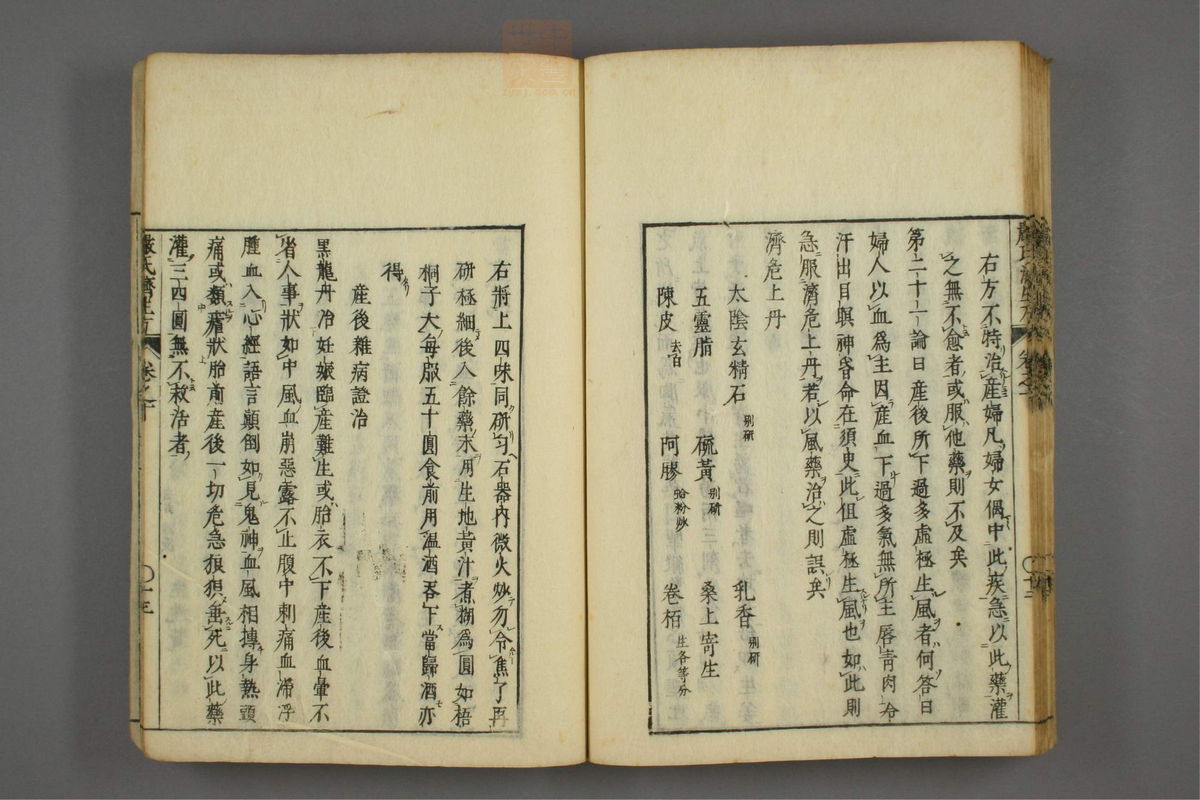 右方不特治産婦凡婦女偶中此疾急以此藥灌
之無不愈者或服他藥則不及矣
第二十一論曰産後所下過多虛極生風者何答曰
婦人以血爲主因産血下過多氣無所主唇青肉冷
汗出目瞑神昏命在須臾此但虛極生風也如此則
急服濟危上丹若以風藥治之則誤矣
濟危上丹
太陰玄精石 別研 乳香 別研
五靈脂 硫黃 別研 桑上寄生
陳皮 去白 阿膠 蛤粉炒 卷栢 生各等分
右將上四味同研勻石器內微火炒勿令焦了再
研極細後入餘藥末用生地黃汁煮糊爲圓如梧
桐子大每服五十圓食前用温酒吞下當歸酒亦
得
産後雜病證治
黑龍丹治妊娠臨産難生或胎衣不下産後血暈不
省人事狀如中風血崩惡露不止腹中刺痛血滯浮
腫血入心經語言顛倒如見鬼神血風相摶身熱頭
痛或類瘧狀胎前産後一切危急狼狽垂死以此藥
灌三四圓無不救活者
嚴氏濟生方 卷之